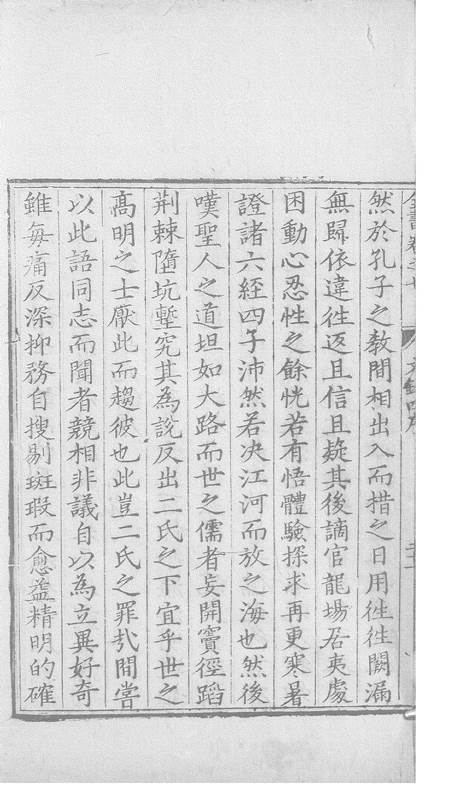 全書卷之七 文錄四序
然於孔子之教間相出入而措之日用徃徃闕漏
無歸依違徃返且信且疑其後謫官龍塲居夷處
困動心忍性之餘恍若有悟體驗探求再更寒暑
證諸六經四子沛然若决江河而放之海也然後
嘆聖人之道坦如大路而世之儒者妄開竇徑蹈
荆棘墮坑塹究其為說反出二氏之下宜乎世之
高明之士厭此而趨彼也此豈二氏之罪㢤間嘗
以此語同志而聞者競相非議自以為立異好竒
雖毎痛反深抑務自搜剔斑瑕而愈益精明的確